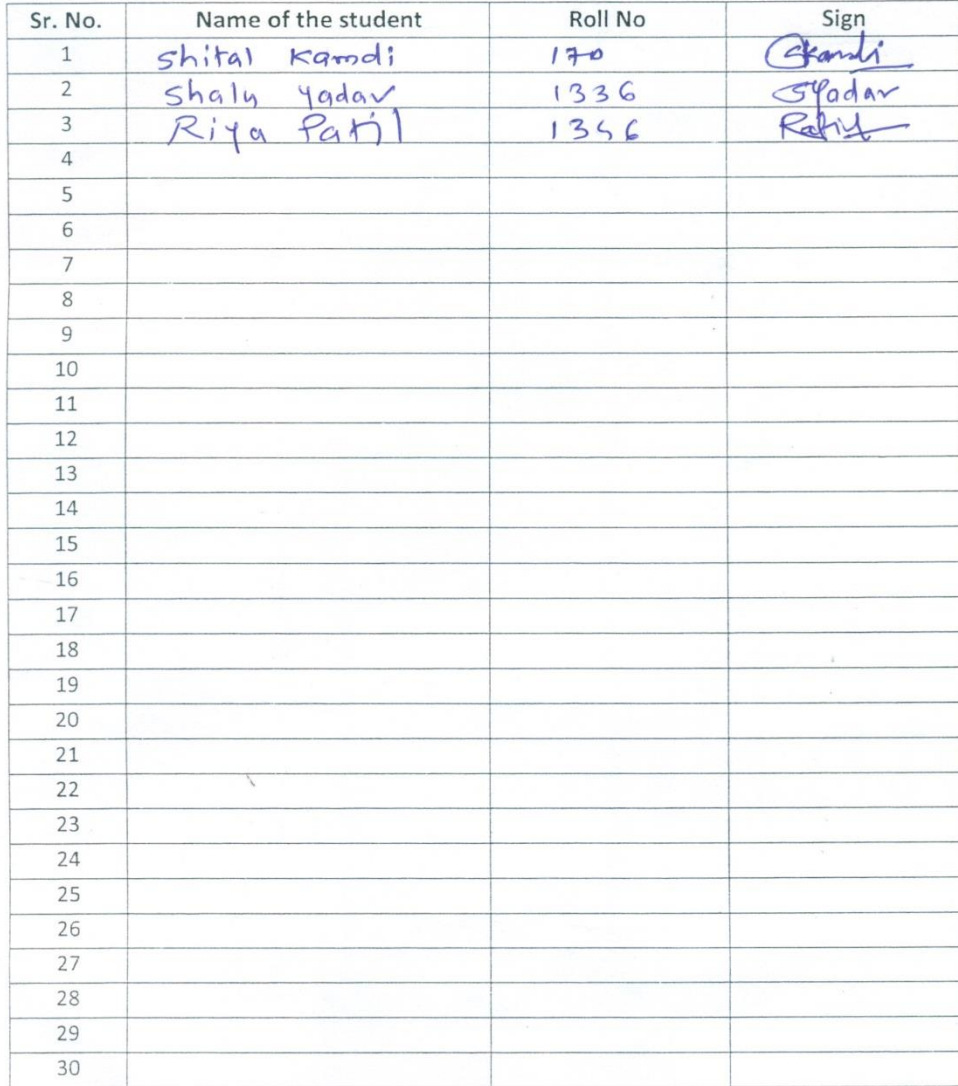 Sr. No. Name of the student Roll No Sign
1 Shital Kamdi 170 Skamdi
2 Shalu Yadav 1336 SYadav
3 Riya Patil 1356 RPatil
4
5
6
7
8
9
10
11
12
13
14
15
16
17
18
19
20
21
22
23
24
25
26
27
28
29
30